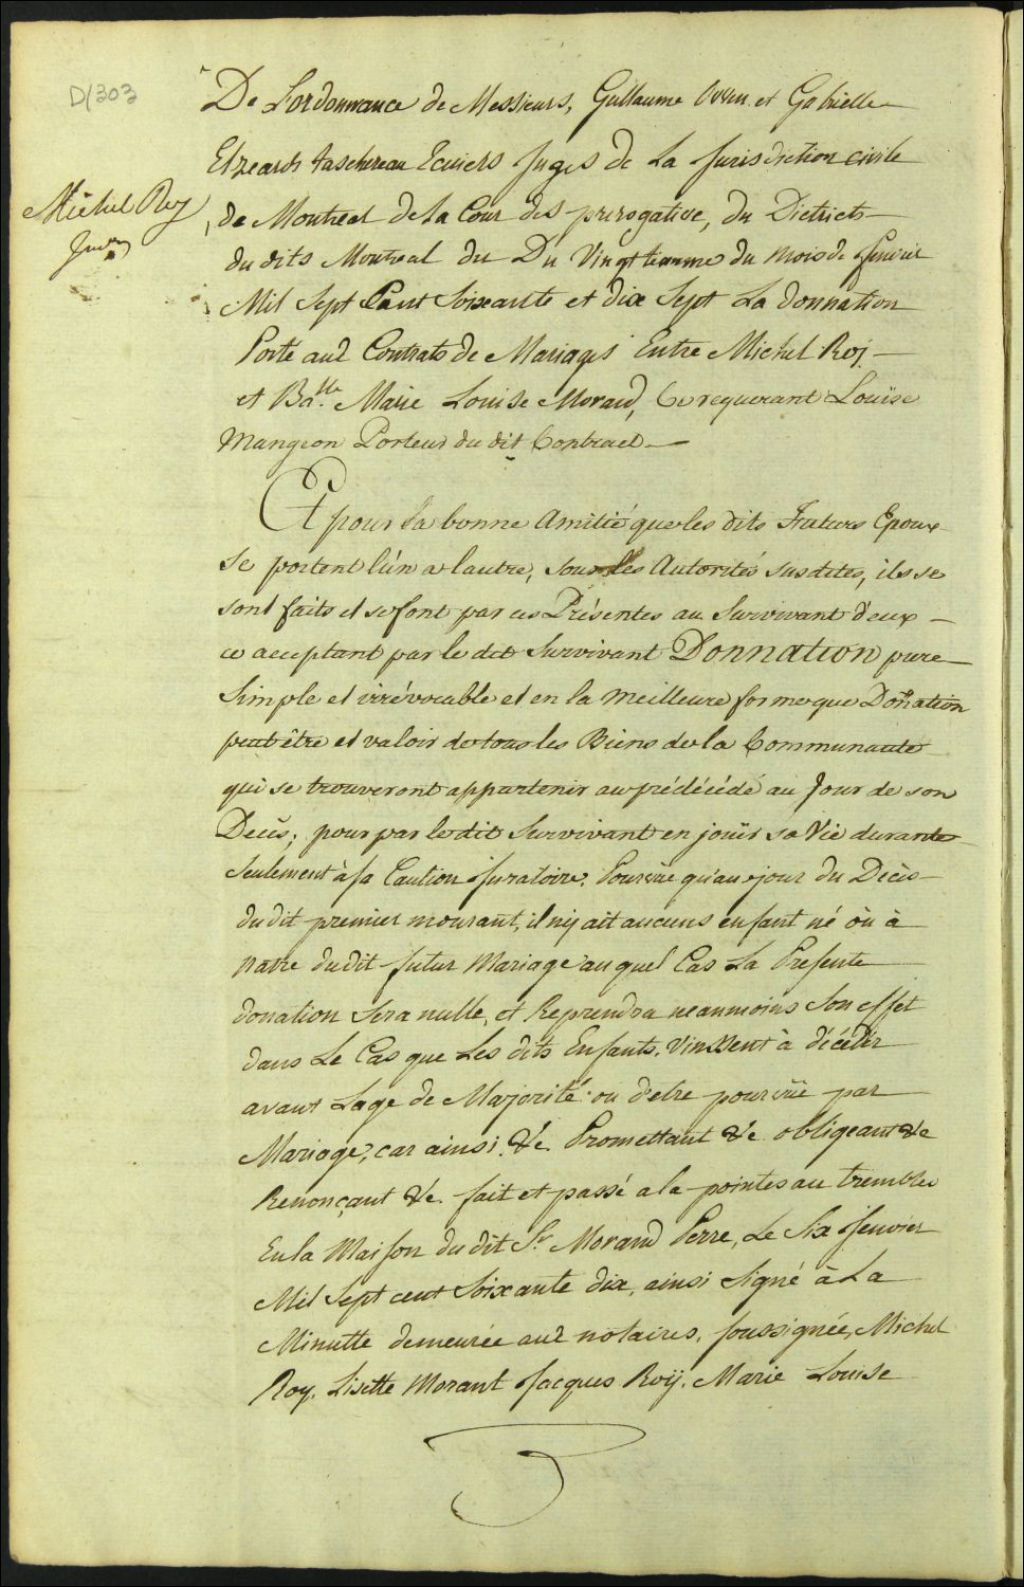 D/303
De Lordonnance de Messieurs, Guillaume Owen et Gabrielle
Elzeard taschereau Ecuiers Juges de La Jurisdiction civile
Michel Roy
de Montreal de la Cour des prerogative, du Dictricts
du dits Montreal du Du Vingttiemme du mois de Jenvier
Mil Sept Cant Soixante et dix Sept La donnation
Porté aux Contrats de Mariages Entre Michel Roj
et Marie Louise Morand, Ce requerant Louise
Mangeon Porteur du dit Contract
Et pour la bonne Amitié que les dits Futurs Epoux
Se portent l'ún a lautre, Sous les Autorités susdites, ils se
sont faits et se font par ces Présentes au Survivant d'eux
ce acceptant par le dit Survivant Donnation pure
Simple et irrévocable et en la meilleure forme que Donation
peut être et valoir de tous les Biens de la Communauté
qui se trouveront appartenir au prédécédé au Jour de son
Decès; pour par le dit Survivant en jouïr sa Vie durante
Seulement à sa Caution Juratoire. Pourvue qu'au jour du Decès
du dit premier mourant, il nij ait aucuns enfant né où à
naitre du dit futur Mariage au quel Cas La Presente
donation Sera nulle, et Reprendra neanmoins Son effet
dans Le Cas que Les dits Enfants. Vinssent à décéder
avant Lage de Majorité ou d'etre pourvüe par
Mariage, car ainsi &c. Promettant &c obligeant &c
Renonçant &c. fait et passé a la pointes au trembles
En la Maison du dit Sr Morand Perre, Le Six Jenvier
Mil Sept cent Soixante dix, ainsi Signé à La
Minutte demeurée aux notaires, Soussignée, Michel
Roy. Lisette Morant Jacques Roÿ. Marie Louise